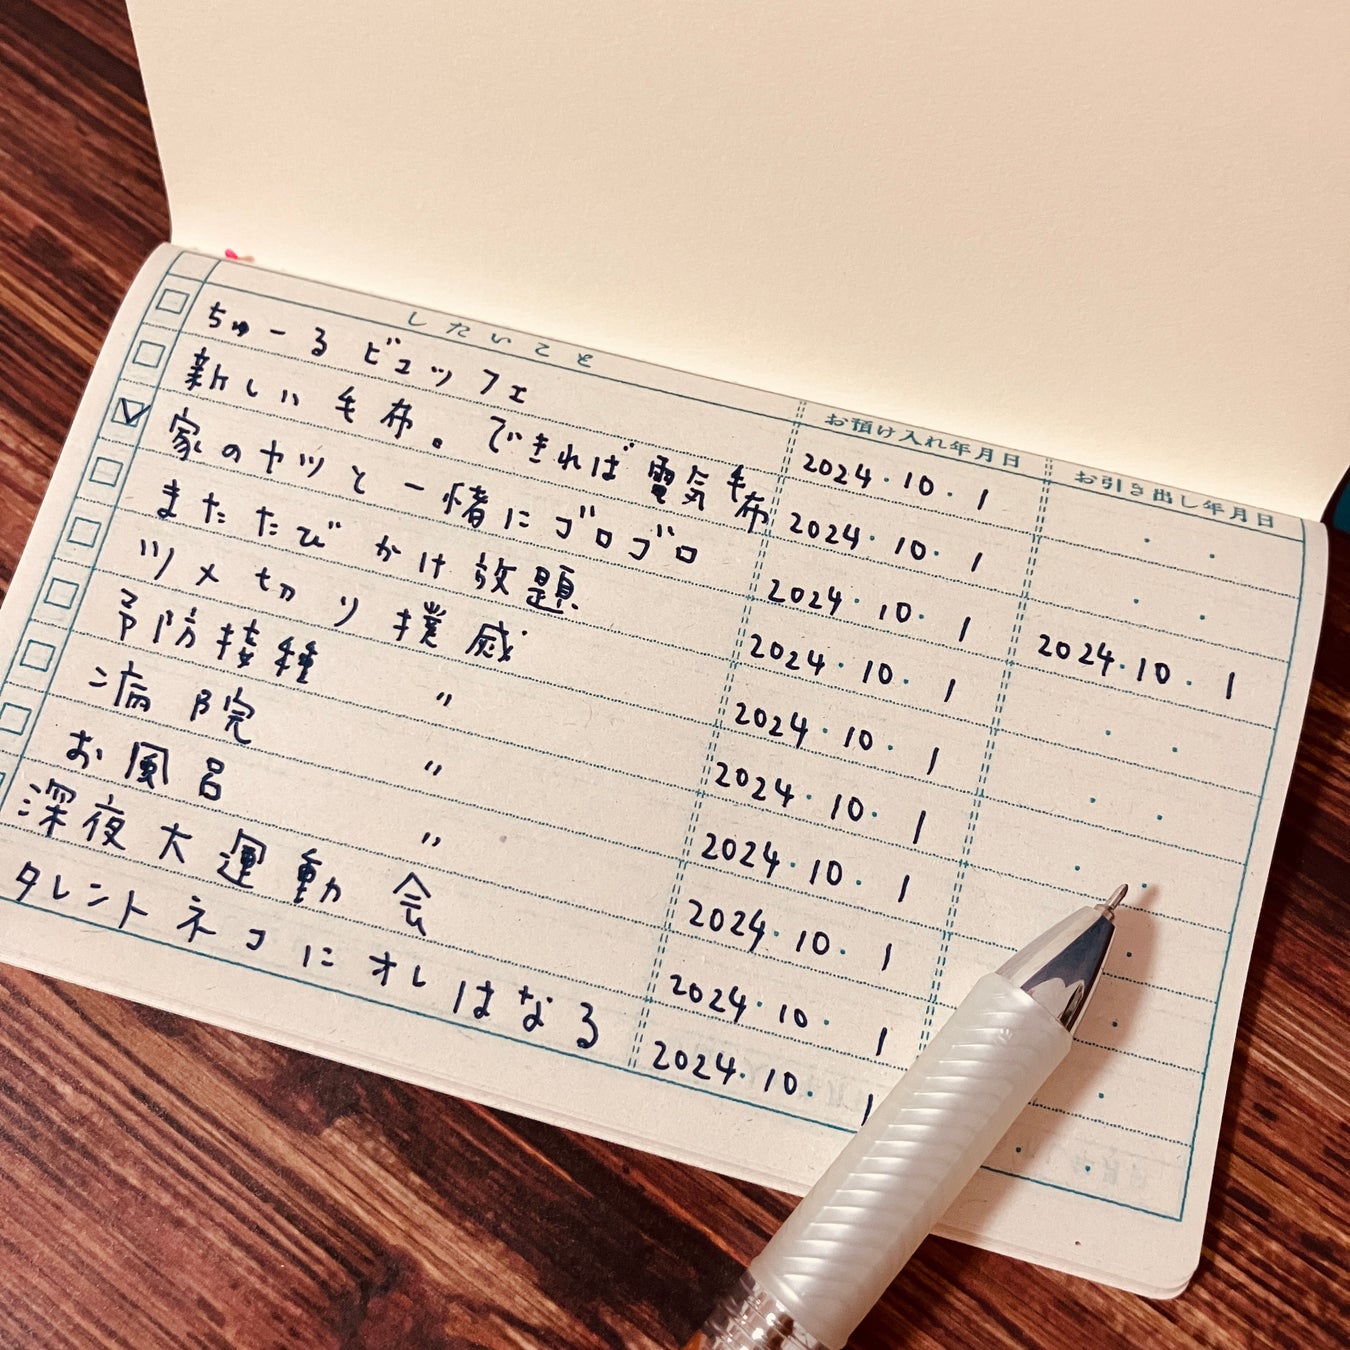 したいこと お預け入れ年月日 お引き出し年月日
ちゅーるビュッフェ 2024.10.1
新しい毛布。できれば電気毛布 2024.10.1
家のヤツと一緒にゴロゴロ 2024.10.1 2024.10.1
またたびかけ放題 2024.10.1
ツメ切り撲滅 2024.10.1
予防接種 〃 2024.10.1
病院 〃 2024.10.1
お風呂 〃 2024.10.1
深夜大運動会 2024.10.1
タレントネコにオレはなる 2024.10.1